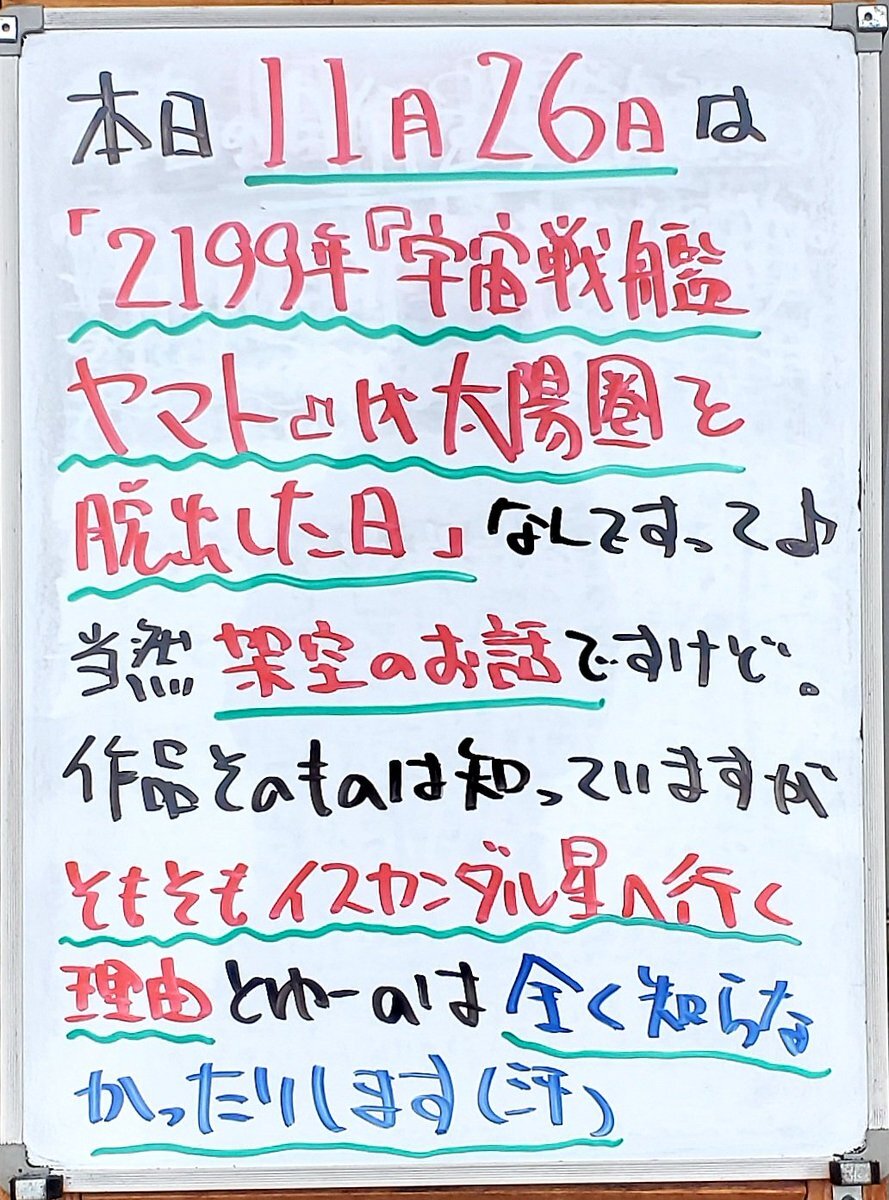 本日11月26日は
「2199年『宇宙戦艦
ヤマト』は太陽圏を
脱出した日」なんですって♪
当然架空のお話ですけど。
作品そのものは知っていますが
そもそもイスカンダル星へ行く
理由とゆーのは全く知らな
かったりします(汗)